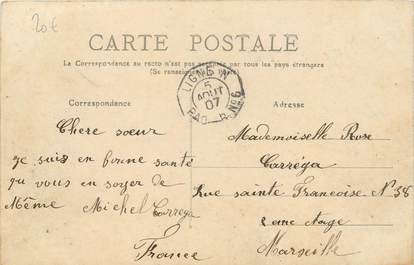 20€
CARTE POSTALE
La Correspondance au recto n'est pas acceptée par tous les pays étrangers
(Se renseigner à la Poste)
LIGNE N
5
AOUT
07
PAQ. FR. Nº 6
Correspondance
Adresse
Chere soeur
je suis en bonne santé
qu vous en soyer de
même Michel Carrega
Mademoiselle Rose
Carréga
Rue sainte Francoise N. 38
2eme etage
France
Marseille